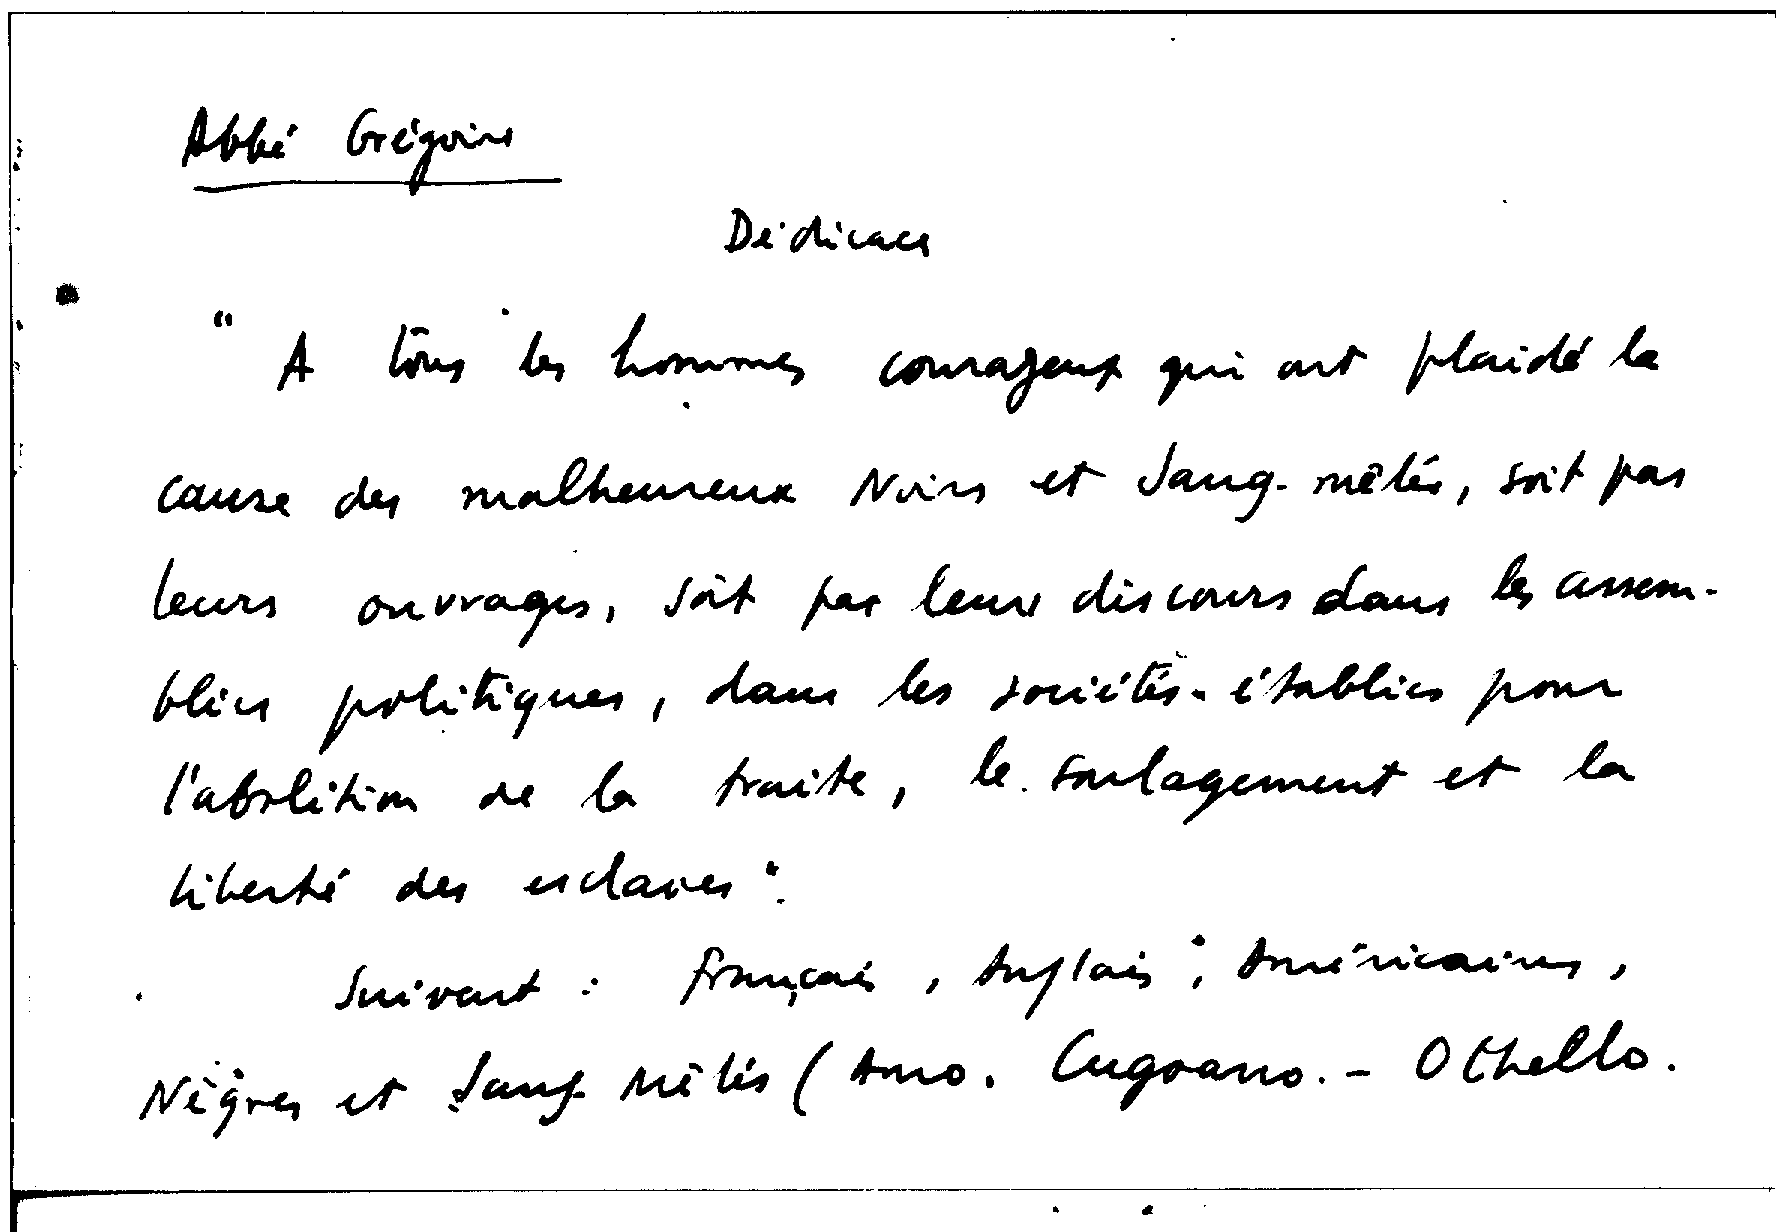 Abbé Grégoire
Dédicace
" A tous les hommes courageux qui ont plaidé la
cause des malheureux Noirs et Sang-mêlés, soit par
leurs ouvrages, soit par leurs discours dans les assem-
blées politiques, dans les sociétés établies pour
l'abolition de la traite, le soulagement et la
liberté des esclaves".
Suivent : Français, Anglais, Américains,
Nègres et Sang-Mêlés (Amo. Cugoano. - Othello.